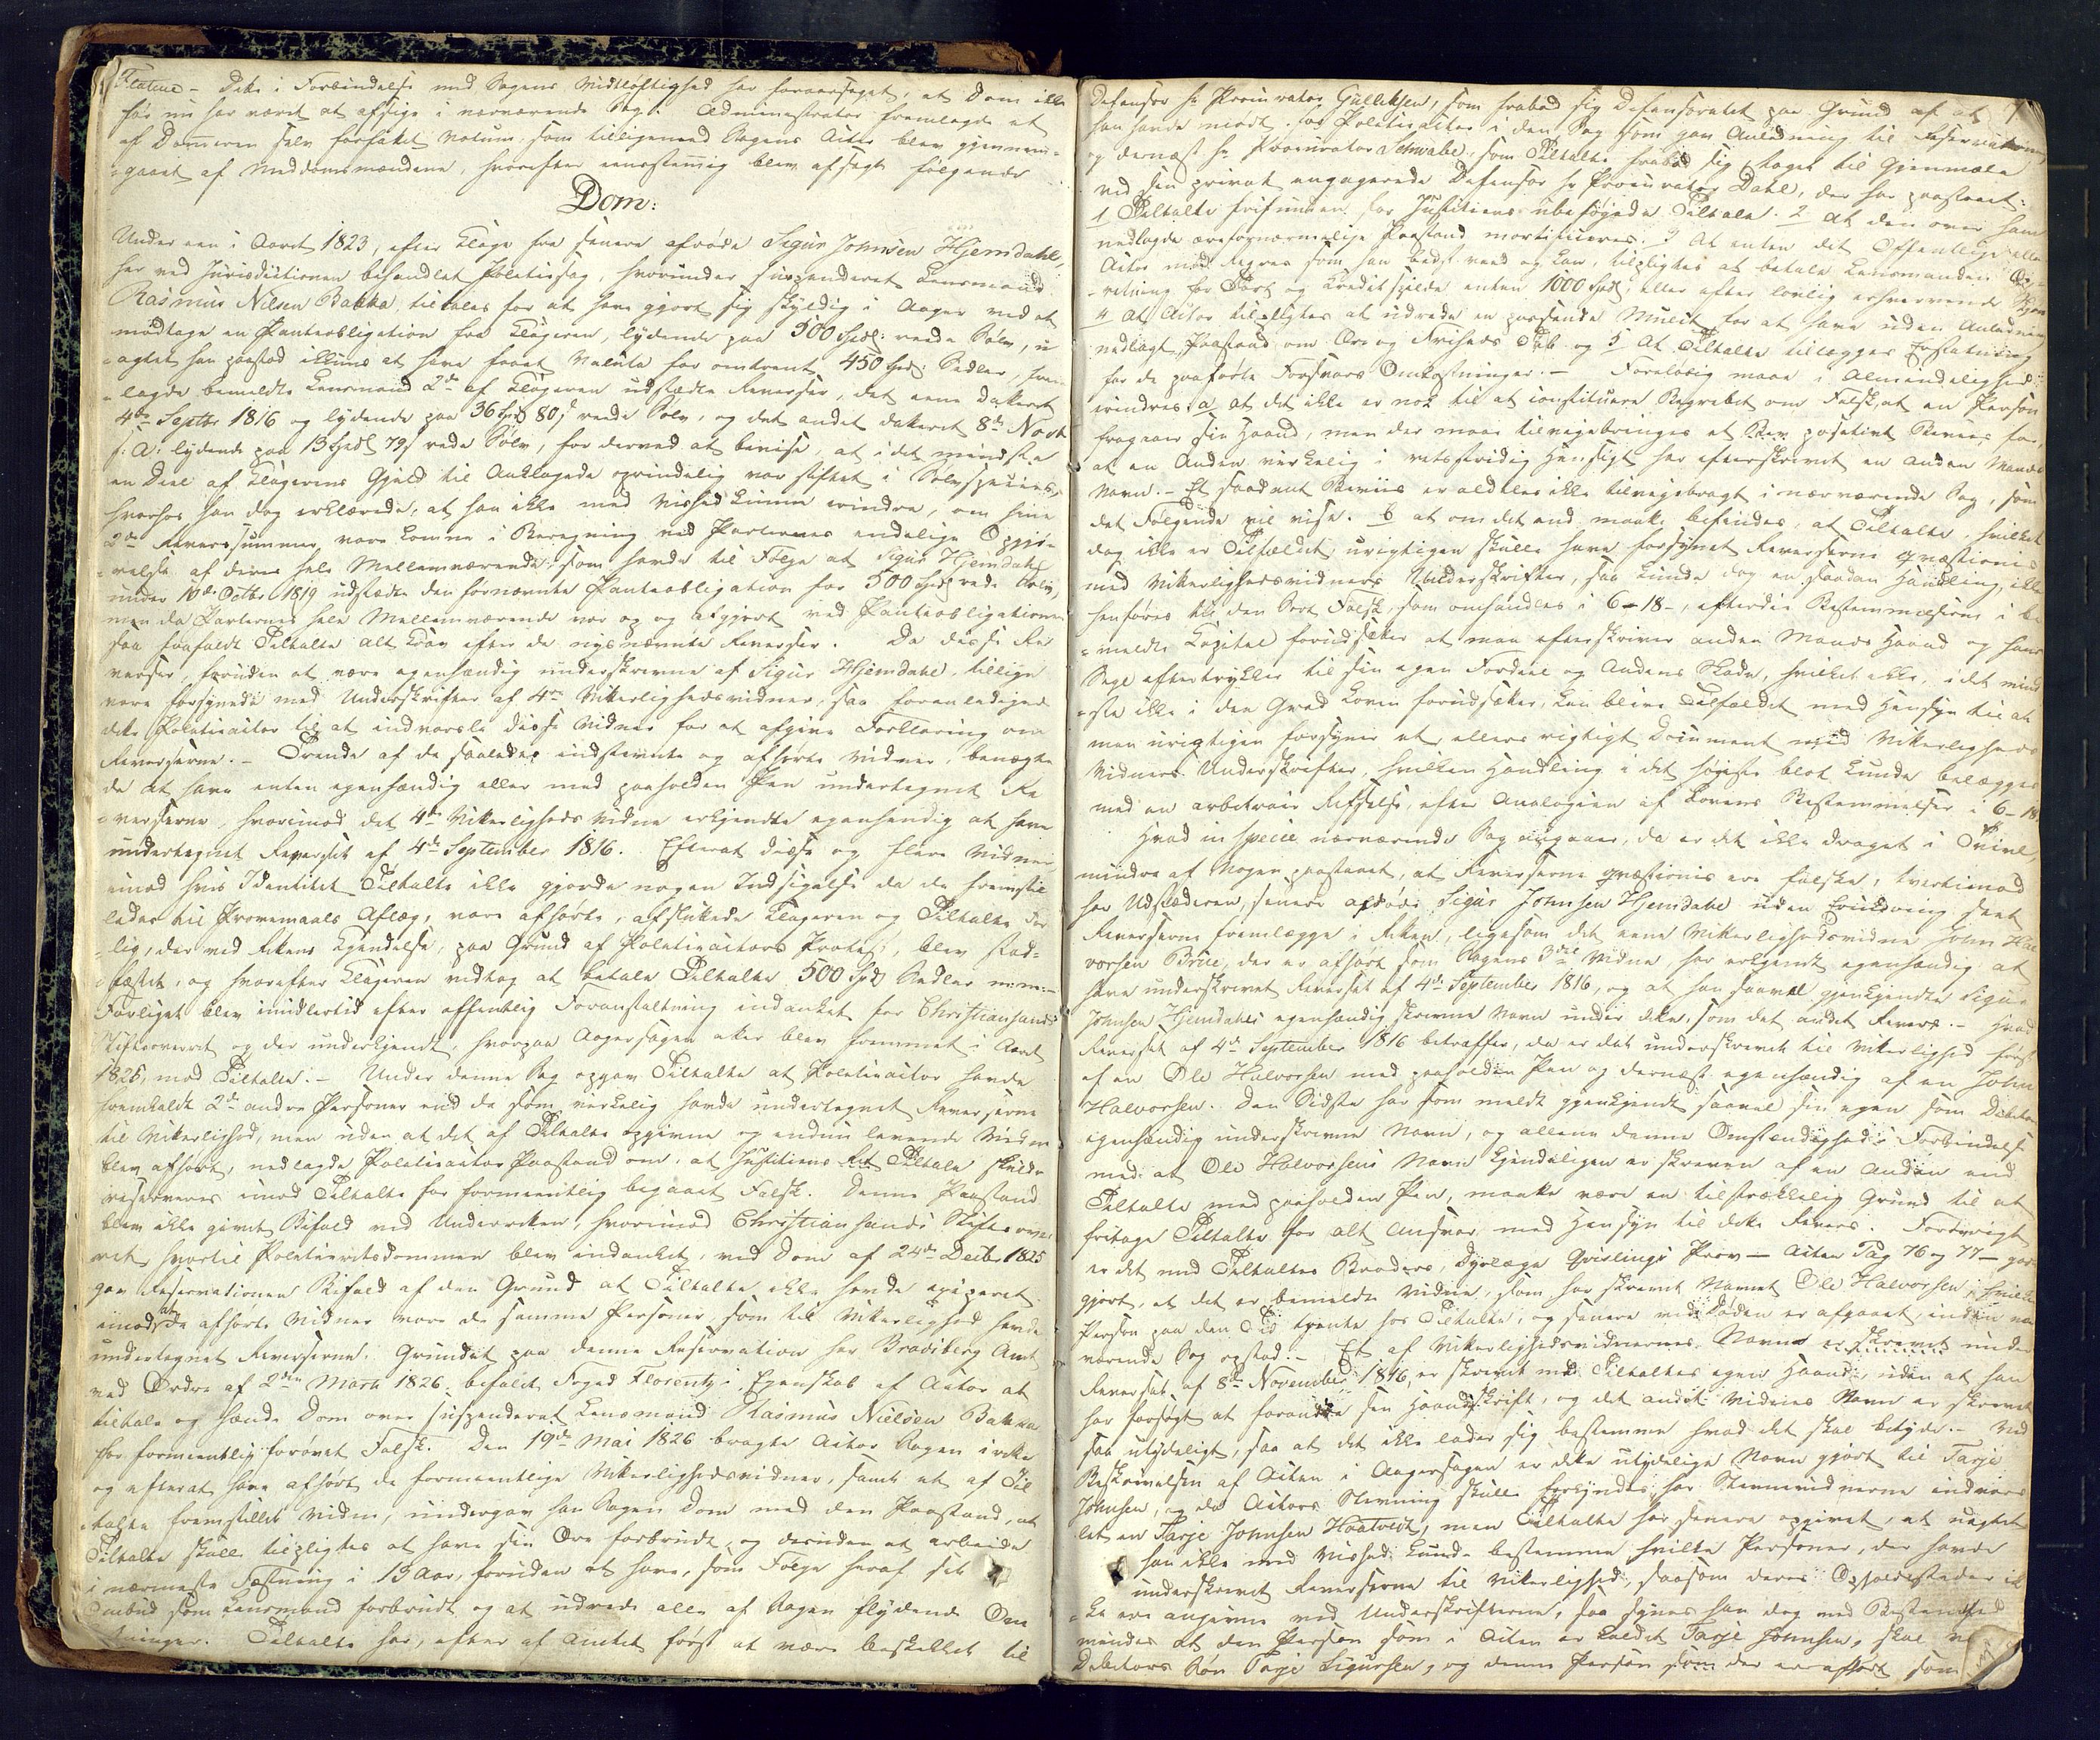 Flatene – Dette i Forbindelse med Sagens Vidtløftighed har foraarsaget, at Dom ikke
før nu har været at afsige i nærværende Sag. Administrator fremlagde et
af Dommeren selv forfattet Votum, som tilligemed Sagens Acter blev gjennem-
gaaet af Meddomsmændene, hvorefter eenstemmig blev afsagt følgende
Dom:
Under een i Aaret 1823, efter Klage fra senere afdøde Sigur Johnsen Hjemdahl,
her ved Jurisdictionen behandlet Politiesag, hvorunder suspenderet Lensmand
Rasmus Nilsen Bakka, tiltales for at have gjort sig skyldig i Aager ved at
modtage en Panteobligation fra Klageren, lydende paa 500 Spdl: rede Sølv, u-
agtet han paastod ikkuns at have faaet Valuta for omtrent 450 Spd: Sedler, frem-
lagde bemeldte Lensmand 2de af Klageren udstædte Reverser, det eene dateret
4de Septbr 1816 og lydende paa 36 Spd 80 s rede Sølv, og det andet dateret 8de Novb
s: A: lydende paa 13 Spdl 79 s rede Sølv, for derved at bevise, at i det mindste
en Deel af Klagerens Gjeld til Anklagede oprindelig var stiftet i Sølvspecies,
hvorhos han dog erklærede, at han ikke med Vished kunne erindre, om hine
2de Reverssummer vare komne i Beregning ved Parternes endelige Opgjø-
relse af deres hele Mellemværende, som havde til Følge at Sigur Hjemdahl
under 10de Octbr 1819 udstædte den fornævnte Panteobligation for 500 Spd rede Sølv,
men da Parternes hele Mellemværende var op og afgjort ved Panteobligationen
saa frafaldt Tiltalte alt Krav efter de nysnævnte Reverser. Da disse Re-
verser, foruden at være egenhændig underskrevne af Sigur Hjemdahl, tillige
vare forsynede med Underskrifter af 4re Vitterlighedsvidner, saa foranledigede
dette Politieactor til at indvarsle disse Vidner for at afgive Forklaring om
Reverserne. – Trende af de saaledes indstevnte og afhørte Vidner, benægte-
de at have enten egenhændig eller med paaholden Pen undertegnet Re-
verserne, hvorimod det 4de Vitterligheds Vidne erkjendte egenhændig at have
undertegnet Reverset af 4de September 1816. Efterat disse og flere Vidner,
imod hvis Identitet Tiltalte ikke gjorde nogen Indsigelse da de fremstil-
ledes til Provemaals Aflæg, vare afhørte, afsluttede Klageren og Tiltalte For-
lig, der ved Rettens Kjendelse, paa Grund af Politieactors Protest, blev stad-
fæstet, og hvorefter Klageren vedtog at betale Tiltalte 500 Spd Sedler m:m: –
Forliget blev imidlertid efter offentlig Foranstaltning indanket for Christiansands
Stiftsoverret og der underkjendt, hvorpaa Aagersagen atter blev fremmet i Aaret
1825, mod Tiltalte. – Under denne Sag opgav Tiltalte at Politieactor havde
fremkaldt 2de andre Personer end de som virkelig havde undertegnet Reverserne
til Vitterlighed, men uden at det af Tiltalte opgivne og endnu levende Vidne
blev afhørt, nedlagde Politieactor Paastand om, at Justitiens Ret Tiltale skulde
reserveres imod Tiltalte for formeentlig begaaet Falsk. Denne Paastand
blev ikke givet Bifald ved Underretten, hvorimod Christiansands Stiftsover-
ret, hvortil Politieretsdommen blev indanket, ved Dom af 24de Decbr 1825
gav Reservationen Bifald af den Grund at Tiltalte ikke havde exiperet
imod at de afhørte Vidner vare de samme Personer som til Vitterlighed havde
undertegnet Reverserne. Grundet paa denne Reservation har Bradsberg Amt
ved Ordre af 2den Marts 1826 befalet Foged Florentz i Egenskab af Actor at
tiltale og hænde Dom over suspenderet Lensmand Rasmus Nielsen Bakka
for formeentlig forøvet Falsk. Den 19de Mai 1826 bragte Actor Sagen i rette
og efterat have afhørt de formeentlige Vitterlighedsvidner, samt et af Til-
talte fremstillet Vidne, undergav han Sagen Dom med den Paastand, at
Tiltalte skulle tilpligtes at have sin Ære forbrudt og desuden at arbeide
i nærmeste Fæstning i 13 Aar, foruden at have, som Følge heraf, sit
Ombud som Lensmand forbrudt og at udrede alle af Sagen flydende Om-
kostninger. Tiltalte har, efter af Amtet først at være beskikket til
Defensor Hr Procurator Gulliksen, som frabad sig Defensoratet paa Grund af at
han havde mødt for Politieactor i den Sag som gav Anledning til Reservationen
og dernæst Hr Procurator Schwabe, som Tiltalte frabad sig, taget til Gjenmæle
ved sin privat engagerede Defensor Hr Procurator Dahl, der har paastaaet:
1 Tiltalte frifunden for Justitiens ubeføyede Tiltale. 2 at den over ham
nedlagde ærefornærmelige Paastand mortificeres. 3 At enten det Offentlige eller
Actor mod Regres som han bedst veed og kan, tilpligtes at betale Lensmanden
for Tort og Creditspilde enten 1000 Spd, eller efter lovlig erhvervende Skjøn
4 At Actor tilpligtes at udrede en passende Mulct for at have uden Anledning
nedlagt Paastand om Ære og Friheds Tab og 5 At Tiltalte tillægges Erstatning
for de paaførte Forsvars Omkostninger. – Foreløbig maae i Almindelighed
erindres: a at det ikke er nok til at constituere Begrebet om Falsk, at en Person
fragaaer sin Haand, men der maae tilveiebringes et positivt Beviis for,
at en Anden virkelig i retsstridig Hensigt har efterskrevet en anden Mands
Navn. – Et saadant Beviis er aldeles ikke tilveiebragt i nærværende Sag, som
det Følgende vil vise. b at om det end maatte befindes, at Tiltalte, hvilket
dog ikke er Tilfældet, urigtigen skulle have forsynet Reverserne quæstionis
med Vitterlighedsvidners Underskrifter, saa kunde dog en saadan Handling ikke
henføres til den Sort Falsk, som omhandles i 6–18–, efterdie Bestemmelserne i be-
meldte Capitel forudsætter at man efterskriver anden Mands Haand og hans
Segl eftertrykker til sin egen Fordeel og Andens Skade, hvilket ikke, i det mind-
ste ikke i den Grad Loven forudsætter, kan blive Tilfældet med Hensyn til at
man urigtigen forsyner et ellers rigtigt Document med Vitterligheds
Vidners Underskrifter, hvilken Handling i det høieste blot kunde belægges
med en arbitrair Refselse, efter Analogien af Lovens Bestemmelser i 6–18
Hvad in Specie nærværende Sag angaaer, da er det ikke draget i Tvivl,
mindre af Nogen paastaaet, at Reverserne quæstionis ere falske, tvertimod
har Udstæderen, senere afdøde Sigur Johnsen Hjemdahl uden Erindring seet
Reverserne fremlægge i Retten, ligesom det eene Vitterlighedsvidne John Hal-
vorsen Brue, der er afhørt som Sagens 3die Vidne, har erkjendt egenhændig at
have underskrevet Reverset af 4de September 1816, og at han saavel gjenkjendte Sigur
Johnsen Hjemdahls egenhændig skrevne Navn under dette, som det andet Revers. – Hvad
Reverset af 4de September 1816 betræffer, da er det underskrevet til Vitterlighed først
af en Ole Halvorsen med paaholden Pen og dernæst egenhændig af en John
Halvorsen. Den Sidste har som meldt gjenkjendt saavel sin egen som Debitors
egenhændig underskrevne Navn, og allene denne Omstændighed i Forbindelse
med at Ole Halvorsens Navn kjendeligen er skreven af en Anden end
Tiltalte med paaholden Pen, maatte være en tilstrækkelig Grund til at
fritage Tiltalte for alt Ansvar med Hensyn til dette Revers. Forøvrigt
er det med Tiltaltes Broders, Dyrlæge Qvislings Prov – Acten Pag 76 og 77 – god-
gjort, at det er bemeldte Vidne, som har skrevet Navnet Ole Halvorsen, hvilken
Person paa den Tid tjente hos Tiltalte, og senere ved Døden er afgaaet, inden nær-
værende Sag opstod. – Et af Vitterlighedsvidnernes Navne er skrevet under
Reverset af 8de November 1816, er skrevet med Tiltaltes egen Haand, uden at han
har forsøgt at forandre sin Haandskrift, og det andet Vidnes Navn er skrevet
saa utydeligt, saa at det ikke lader sig bestemme hvad det skal betyde. – Ved
Beskrivelsen af Acten i Aagersagen er dette utydelige Navn gjort til Tarje
Johnsen, og da Actors Stevning skulle forkyndes, har Stevnevidnerne indvars-
let en Tarje Johnsen Haatvedt, men Tiltalte har senere opgivet, at uagtet
han ikke med Vished kunde bestemme hvilke Personer, der havde
underskrevet Reverserne til Vitterlighed, saasom deres Opholdssteder ik-
ke ere angivne ved Underskrifterne, saa synes han dog med Bestemthed
mindes at den Person som i Acten er kaldet Tarje Johnsen, skal være
Debitors Søn Tarje Sigursen, og denne Person som der er afhørt som